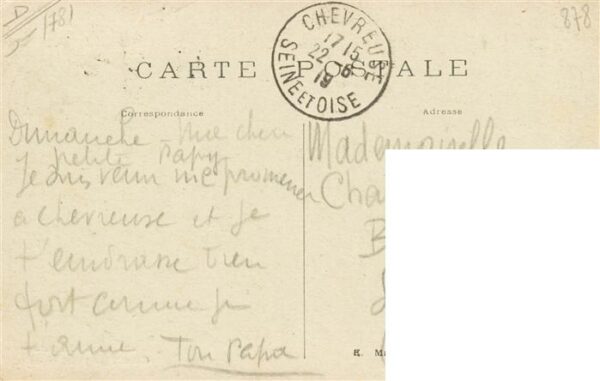 D
1781
878
CHEVREUSE
17 15
22 -6
19
SEINE ET OISE
CARTE POSTALE
Correspondance
Adresse
Dimanche ma chere
petite
Je suis venu me promener
a chevreuse et Je
t'embrasse bien
fort comme je
t'aime. Ton Papa
Mademoiselle
Cha
B
E. M